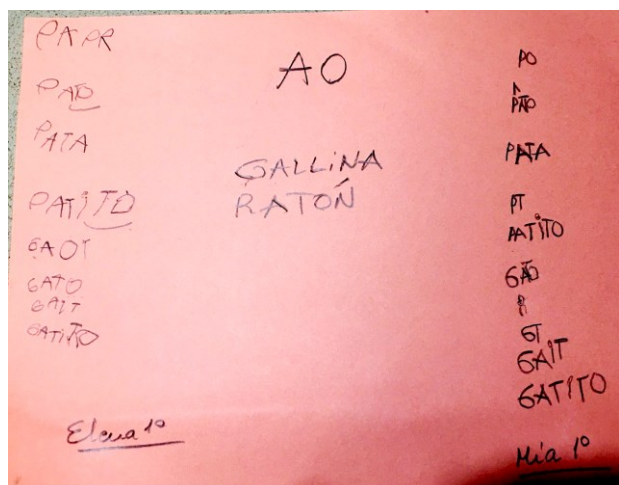 PAPR
PATO
PATA
PATITO
GAOT
GATO
GAIT
GATITO
Elena 1º
AO
GALLINA
RATÓN
PO
PATO
PATA
PT
PATITO
GATO
GT
GAIT
GATITO
Mía 1º